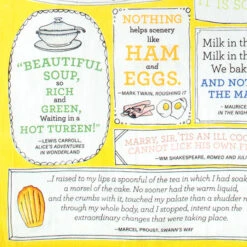 "BEAUTIFUL
SOUP,
so
RICH
and
GREEN,
Waiting in a
HOT TUREEN!"
—LEWIS CARROLL,
ALICE'S ADVENTURES
IN WONDERLAND
NOTHING
helps scenery
like
HAM
and
EGGS.
—MARK TWAIN, ROUGHING IT
IT IS SO
Milk in th
Milk in the
We bak
AND NOT
THE MA
—MAURICE
IN THE NIGHT
MARRY, SIR, 'TIS AN ILL COO
CANNOT LICK HIS OWN
—WM SHAKESPEARE, ROMEO AND JULI
...I raised to my lips a spoonful of the tea in which I had soak
a morsel of the cake. No sooner had the warm liquid,
and the crumbs with it, touched my palate than a shudder
through my whole body, and I stopped, intent upon the
extraordinary changes that were taking place.
—MARCEL PROUST, SWANN'S WAY